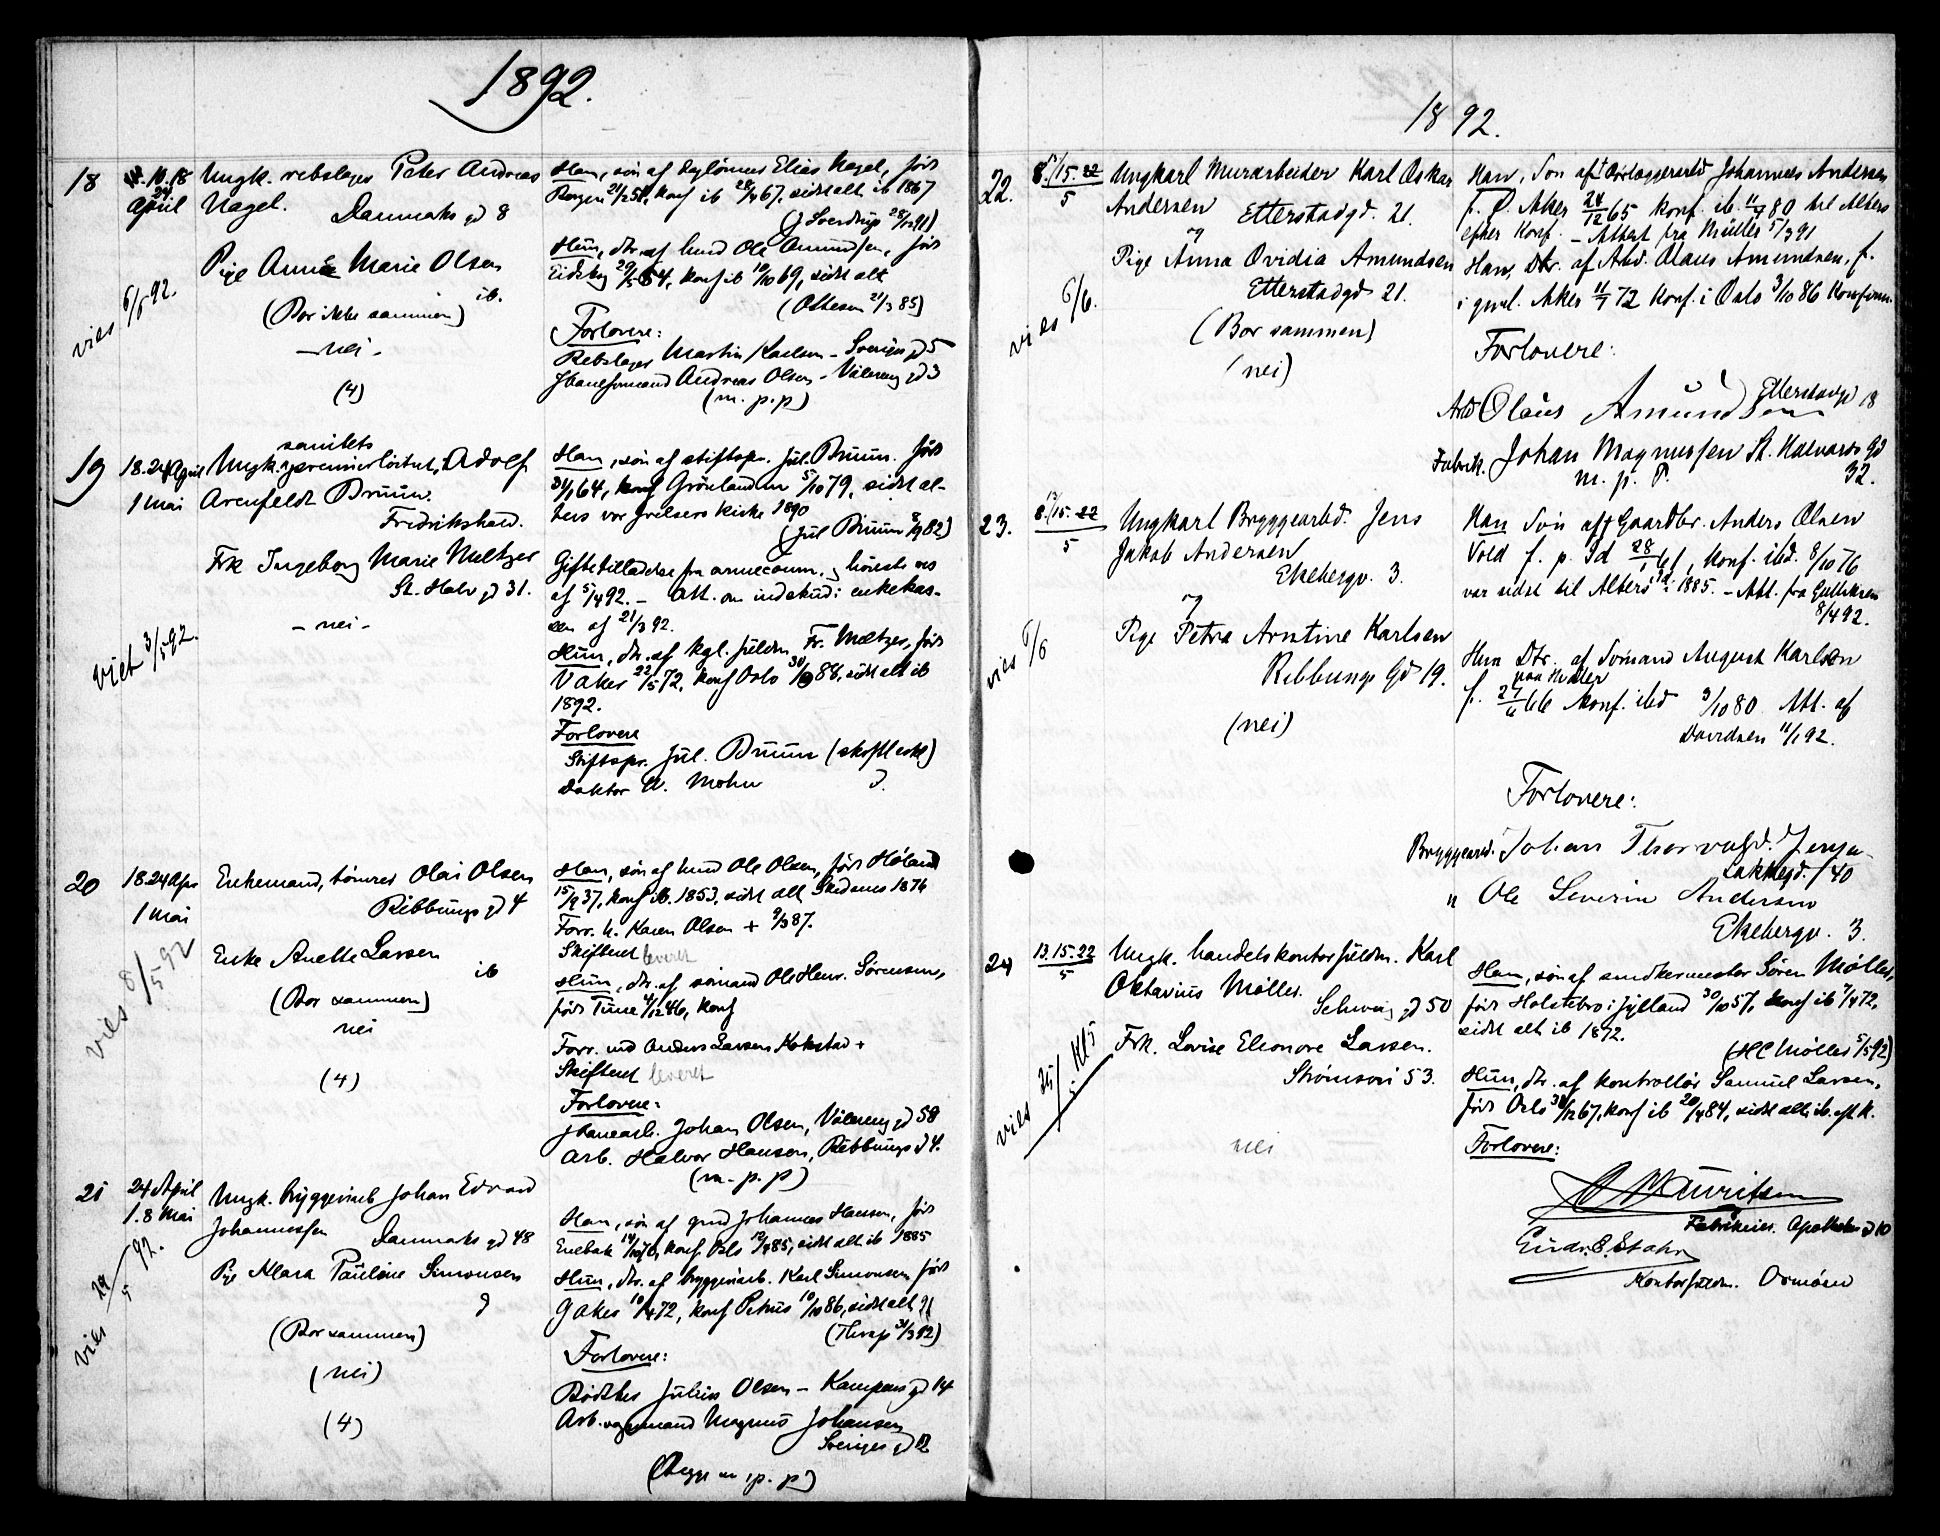 1892.
18
10. 18
24
April
Ungk. rebslager Peter Andreas
Nagel. Danmarks gd 8
Pige Anne Marie Olsen
ib.
(Bor ikke sammen)
- nei -
(4)
vies 6/5 92.
Han, søn af Elias Nagel, født
Bergen konf ib 67, sidst alt ib 1867
(J Sverdrup
Hun, dtr. af hmd Ole Amundsen, født
Eidskog konf ib 10/10 69, sidst alt
(Olsesen 21/3 85)
Forlovere:
Rebslager Martin Karlsen - Sveriges gd 5
Jbaneformand Andreas Olsen - Vålereng gd 3
(m. p. p)
19
18. 24 April
1 Mai
sanitets
Ungk. premierløitnt, Adolf
Arenfeldt Bruun.
Fredrikshald.
Frk Ingeborg Marie Meltzer
St. Halv gd 31.
- nei -
viet 3/5 92.
Han, søn af stiftspr. Jul. Bruun. født
64, konf Grönland m 5/10 79, sidst al-
ters vor frelsers kirke 1890
(Jul Bruun 82)
Giftetilladelse fra armecomm.
af 5/4 92. - Att. om indskud i enkekas-
sen af 21/3 92.
Hun, dtr. af kgl. fuldm. Fr. Meltzer, født
V Aker 22/5 72, konf Oslo 88, sidst alt ib
1892.
Forlovere
Stiftspr. Jul. Bruun (skriftl erkl)
Doktor A. Mohn
20
18. 24 Apr
1 Mai
Enkemand, tømrer Olai Olsen
Ribbungs gd 4
Enke Anette Larsen
ib
(Bor sammen)
nei
(4)
vies 8/5 92
Han, søn af hmd Ole Olsen, født Høland
15/9 37, konf ib. 1853, sidst alt 1876
Forr. h. Karen Olsen + 87.
Skiftent leveret
Hun, dtr. af sømand Ole Henr. Sørensen,
født Tune 4/12 46, konf
Forr. md Anders Larsen Kokstad +
Skiftent leveret
Forlovere:
Jbanearb. Johan Olsen, Vålereng gd 58
Arb. Halvor Hansen, Ribbungs gd 4.
(m. p. p)
21
24 April
1. 8 Mai
Ungk. bryggeriarb Johan Edvard
Johannessen Danmarks gd 48
Pige Klara Pauline Simonsen
(Bor sammen)
(nei)
(4)
vies 29/5 92.
Han, søn af gmd Johannes Hansen, født
Enebak 14/10 70, konf Oslo 85, sidst alt ib 1885
Hun, dtr. af bryggeriarb. Karl Simonsen født
G Aker 10/4 72, konf Petrus 10/10 86, sidst alt 91
(Thrap 31/3 92)
Forlovere:
Bødker Julius Olsen - Kampens gd 14
Arb. vognmand Magnus Johansen
Sveriges gd 12
(Begge m. p. p)
1892.
22.
8. 15. 22
5
Ungkarl Murarbeider Karl Oskar
Andersen Etterstadgd. 21.
og
Pige Anna Ovidia Amundsen
Etterstadgd 21.
(Bor sammen)
(nei)
vies 6/6.
Han, Søn af Johannes Andersen
f. Ø. Aker 24/12 65 konf. ib. 80 til Alters
efter konf. - Attest fra Müller 5/3 91
Han, Dtr. af Arb. Olaus Amundsen, f.
i gml. Aker 72 konf. i Oslo 3/10 86 Konfirm.
Forlovere:
Arb Olaus Amundsen Etterstadgd 18
Fabrik. Johan Magnussen St. Halvards Gd
m. p. P. 32.
23.
8. 15. 22
5
Ungkarl Bryggearbd. Jens
Jakob Andersen
Ekebergv. 3.
og
Pige Petra Arntine Karlsen
Ribbungs Gd 19.
(nei)
vies 6/6
Han Søn af Gaardbr. Anders Olsen
Vold f. p. Id 28/1 61, konf. ibd. 8/10 76
var sidst til Alters 1885. - Att. fra Gulliksen
8/4 92.
Hun Dtr. af Sømand August Karlsen
f. 27/6 66 konf. ibd 3/10 80 Att. af
Davidsen 11/1 92.
Forlovere:
Bryggearbd. Johan Thorvald. Jensen
Lakkegd. 40
" Ole Severin Andersen
Ekebergv. 3.
24
13. 15. 22
5
Ungk. handelskontorfuldm. Karl
Oktavius Møller.
Schweig gd 50
Frk. Lovise Eleonore Larsen.
Strømsvei 53.
nei
vies 25/5 Kl 5
Han, søn af snedkermester Søren Møller,
født Holstebro i Jylland 30/10 57, konf ib 7/4 72,
sidst alt ib 1872.
(HC Møller 5/5 92)
Hun, dtr. af kontrollør Samuel Larsen,
født Oslo 31/12 67, konf ib 20/4 84, sidst alt. ib. eft. k.
Forlovere:
Mauritzen
Fabrikeier. Apotheker gd 10
Kontorfuldm. Ormøen